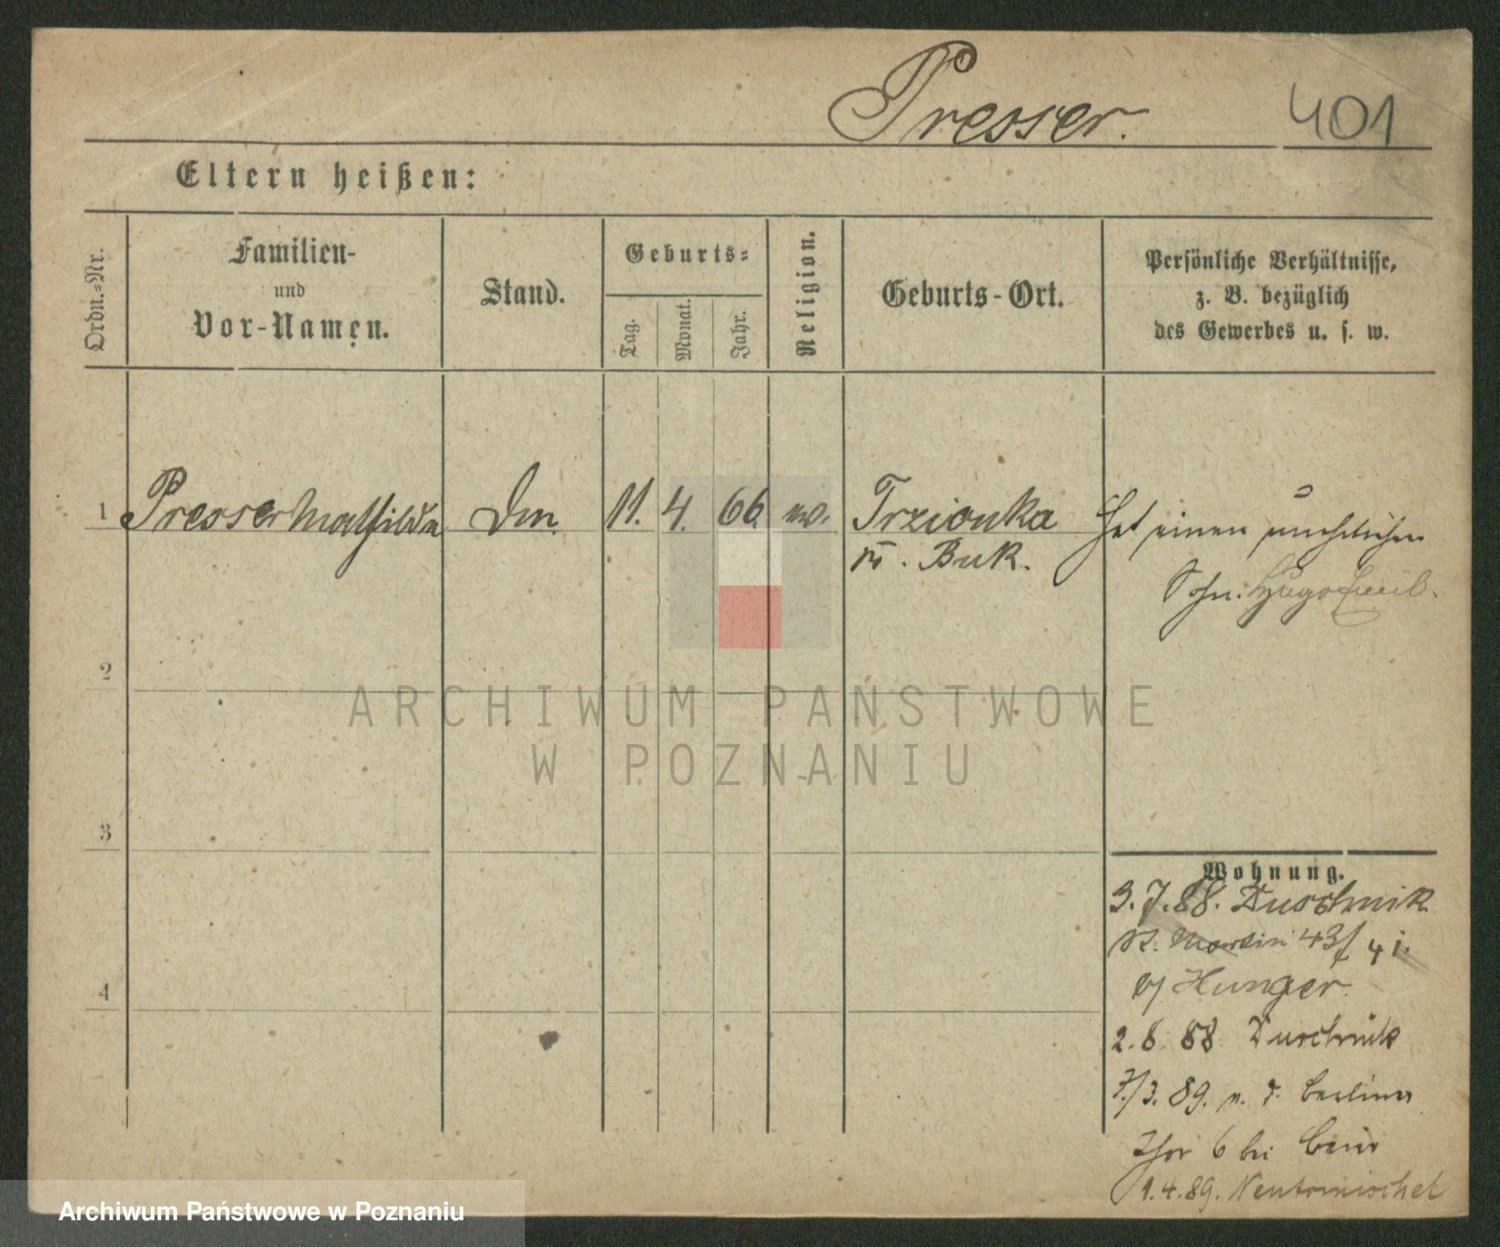 Presser. 401
Eltern heißen:
Ordn.-Nr.
Familien-
und
Vor-Namen.
Stand.
Geburts-
Tag.
Monat.
Jahr.
Religion.
Geburts-Ort.
Persönliche Verhältnisse,
z. B. bezüglich
des Gewerbes u. s. w.
1 Presser Mathilda Dm 11. 4. 66 Trzionka Hat einen unehelichen
Buk. Sohn. Hugo Emil.
2
ARCHIWUM PAŃSTWOWE
W POZNANIU
3
4
Wohnung.
3.7.88. Duschnik
St. Martin 43/4 i.
b/ Hunger.
2.6.88 Duschnik
7/3.89. v. d. Berliner
Thor 6 bei
1.4.89. Neutomischel
Archiwum Państwowe w Poznaniu